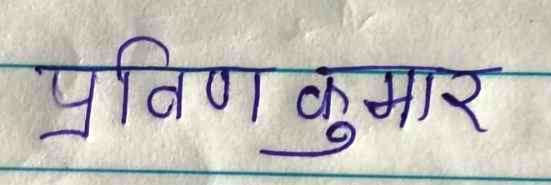 प्रविण कुमार